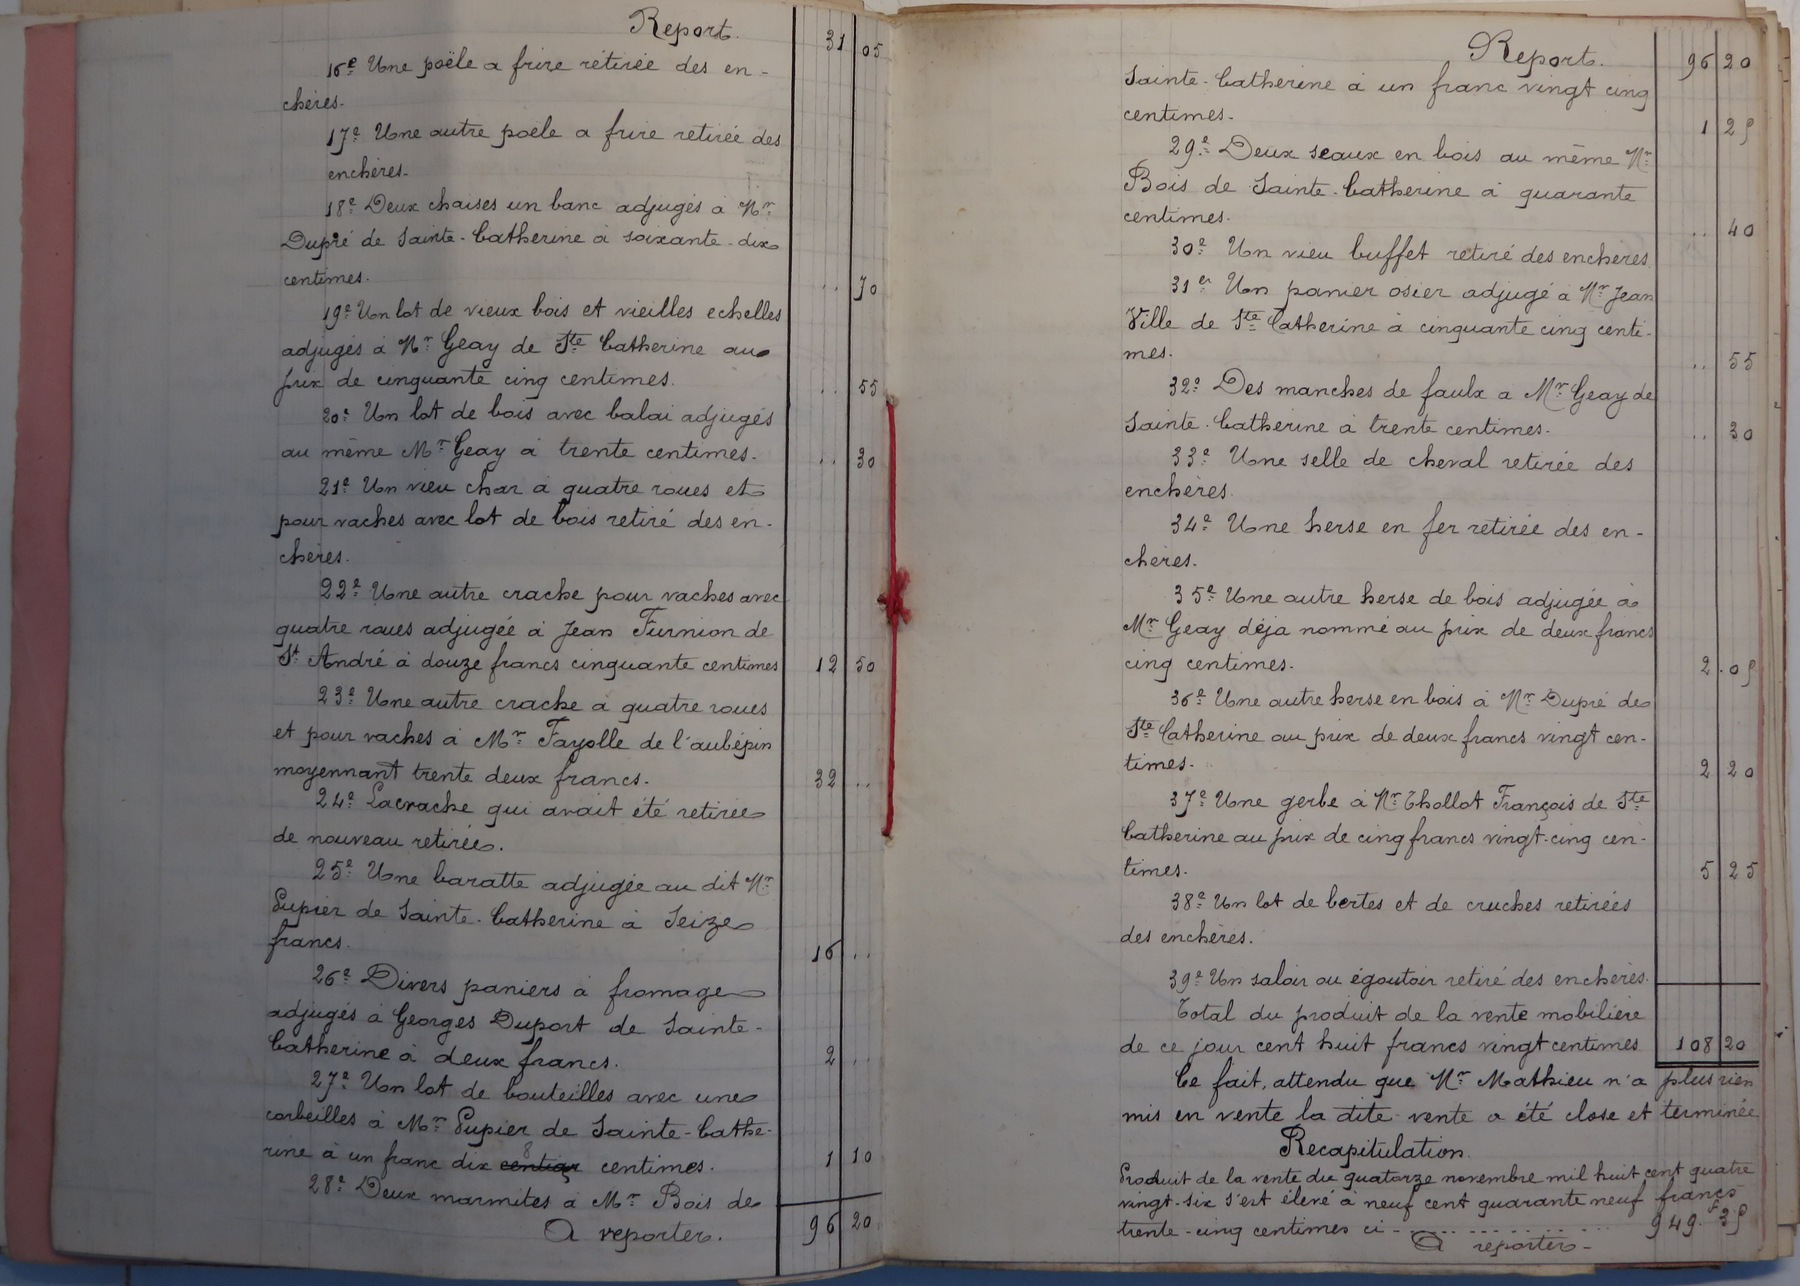 Report. 31 05
16e Une poële a frire retirée des en-
chères.
17e Une autre poële a frire retirée des
enchères.
18e Deux chaises un banc adjugés à Mr
Dupré de Sainte-Catherine à soixante-dix
centimes. .. 70
19e Un lot de vieux bois et vieilles echelles
adjugés à Mr Geay de Ste Catherine au
prix de cinquante cinq centimes. .. 55
20e Un lot de bois avec balai adjugés
au même Mr Geay à trente centimes. .. 30
21e Un vieu char à quatre roues et
pour vaches avec lot de bois retiré des en-
chères.
22e Une autre crache pour vaches avec
quatre roues adjugée à Jean Furnion de
St André à douze francs cinquante centimes 12 50
23e Une autre crache à quatre roues
et pour vaches à Mr Fayolle de l'aubépin
moyennant trente deux francs. 32 ..
24e Lacrache qui avait été retirée
de nouveau retirée.
25e Une baratte adjugée au dit Mr
Pupier de Sainte-Catherine à Seize
francs. 16 ..
26e Divers paniers à fromage
adjugés à Georges Duport de Sainte-
Catherine à deux francs. 2 ..
27e Un lot de bouteilles avec une
corbeilles à Mr Pupier de Sainte-Cathe-
rine à un franc dix centimes. 1 10
28e Deux marmites à Mr Bois de
A reporter. 96 20
Report. 96 20
Sainte-Catherine à un franc vingt cinq
centimes. 1 25
29e Deux seaux en bois au même Mr
Bois de Sainte-Catherine à quarante
centimes. .. 40
30e Un vieu buffet retiré des enchères
31e Un panier osier adjugé à Mr Jean
Ville de Ste Catherine à cinquante cinq centi-
mes. .. 55
32e Des manches de faulx a Mr Geay de
Sainte-Catherine à trente centimes. .. 30
33e Une selle de cheval retirée des
enchères.
34e Une herse en fer retirée des en-
chères.
35e Une autre herse de bois adjugée à
Mr Geay déja nommé au prix de deux francs
cinq centimes. 2 .05
36e Une autre herse en bois à Mr Dupré de
Ste Catherine au prix de deux francs vingt cen-
times. 2 20
37e Une gerbe à Mr Thollot François de Ste
Catherine au prix de cinq francs vingt-cinq cen-
times. 5 25
38e Un lot de bertes et de cruches retirées
des enchères.
39e Un saloir ou égoutoir retiré des enchères.
Total du produit de la vente mobilière
de ce jour cent huit francs vingt centimes 108 20
Ce fait, attendu que Mr Mathieu n'a plus rien
mis en vente la dite vente a été close et terminée
Recapitulation.
Produit de la vente du quatorze novembre mil huit cent quatre
vingt-six s'est élevé à neuf cent quarante neuf francs
trente-cinq centimes ci - . . . . . . . . 949.F 35
A reporter -